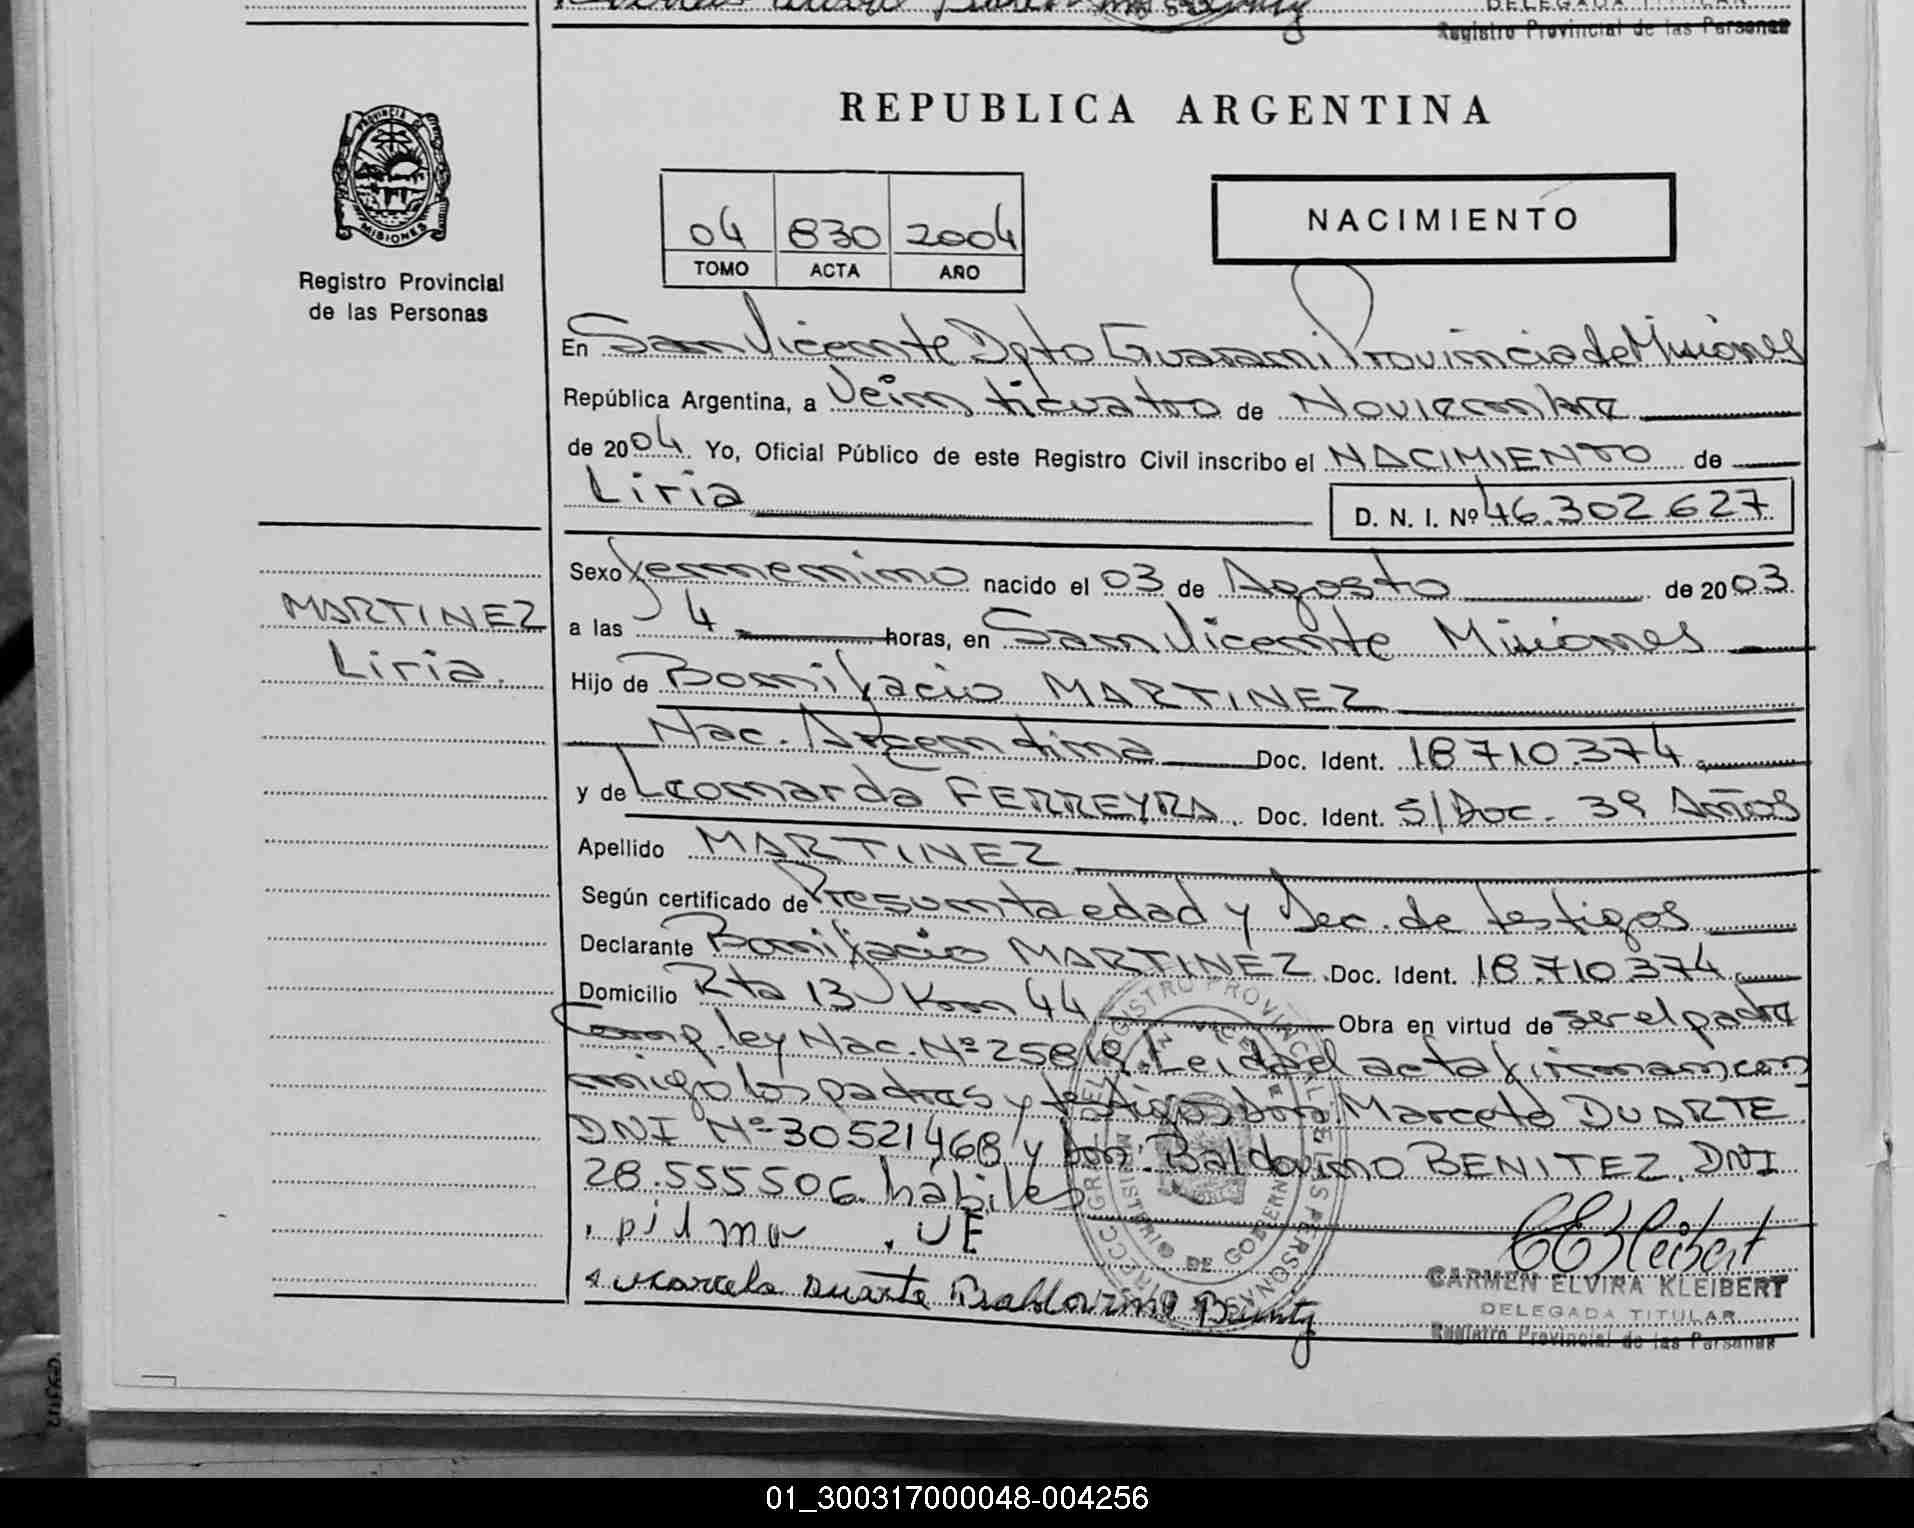 DELEGADA TITULAR
Registro Provincial de las Personas
PROVINCIA DE
MISIONES
Registro Provincial
de las Personas
REPUBLICA ARGENTINA
04 830 2004
TOMO ACTA AÑO
NACIMIENTO
En San Vicente Dpto Guarani Provincia de Misiones
República Argentina, a Veinticuatro de Noviembre
de 2004 Yo, Oficial Público de este Registro Civil inscribo el NACIMIENTO de
Liria D. N. I. Nº 46.302.627
Sexo femenino nacido el 03 de Agosto de 2003
MARTINEZ
Liria.
a las 4 horas, en San Vicente Misiones
Hijo de Bonifacio MARTINEZ
Nac. Argentina Doc. Ident. 18710.374
y de Leonarda FERREYRA. Doc. Ident. S/Doc. 39 Años
Apellido MARTINEZ
Según certificado de Presunta edad y Dec. de testigos
Declarante Bonifacio MARTINEZ. Doc. Ident. 18.710.374
Domicilio Rta 13 Km 44 Obra en virtud de ser el padre
Comp. ley Nac. Nº 25819. Leida el acta firman con
migo los padres y testigos don Marcelo DUARTE
DNI Nº 30521468 y don Baldovino BENITEZ. DNI
28.555506 habiles
CARMEN ELVIRA KLEIBERT
DELEGADA TITULAR
Registro Provincial de las Personas
01_300317000048-004256